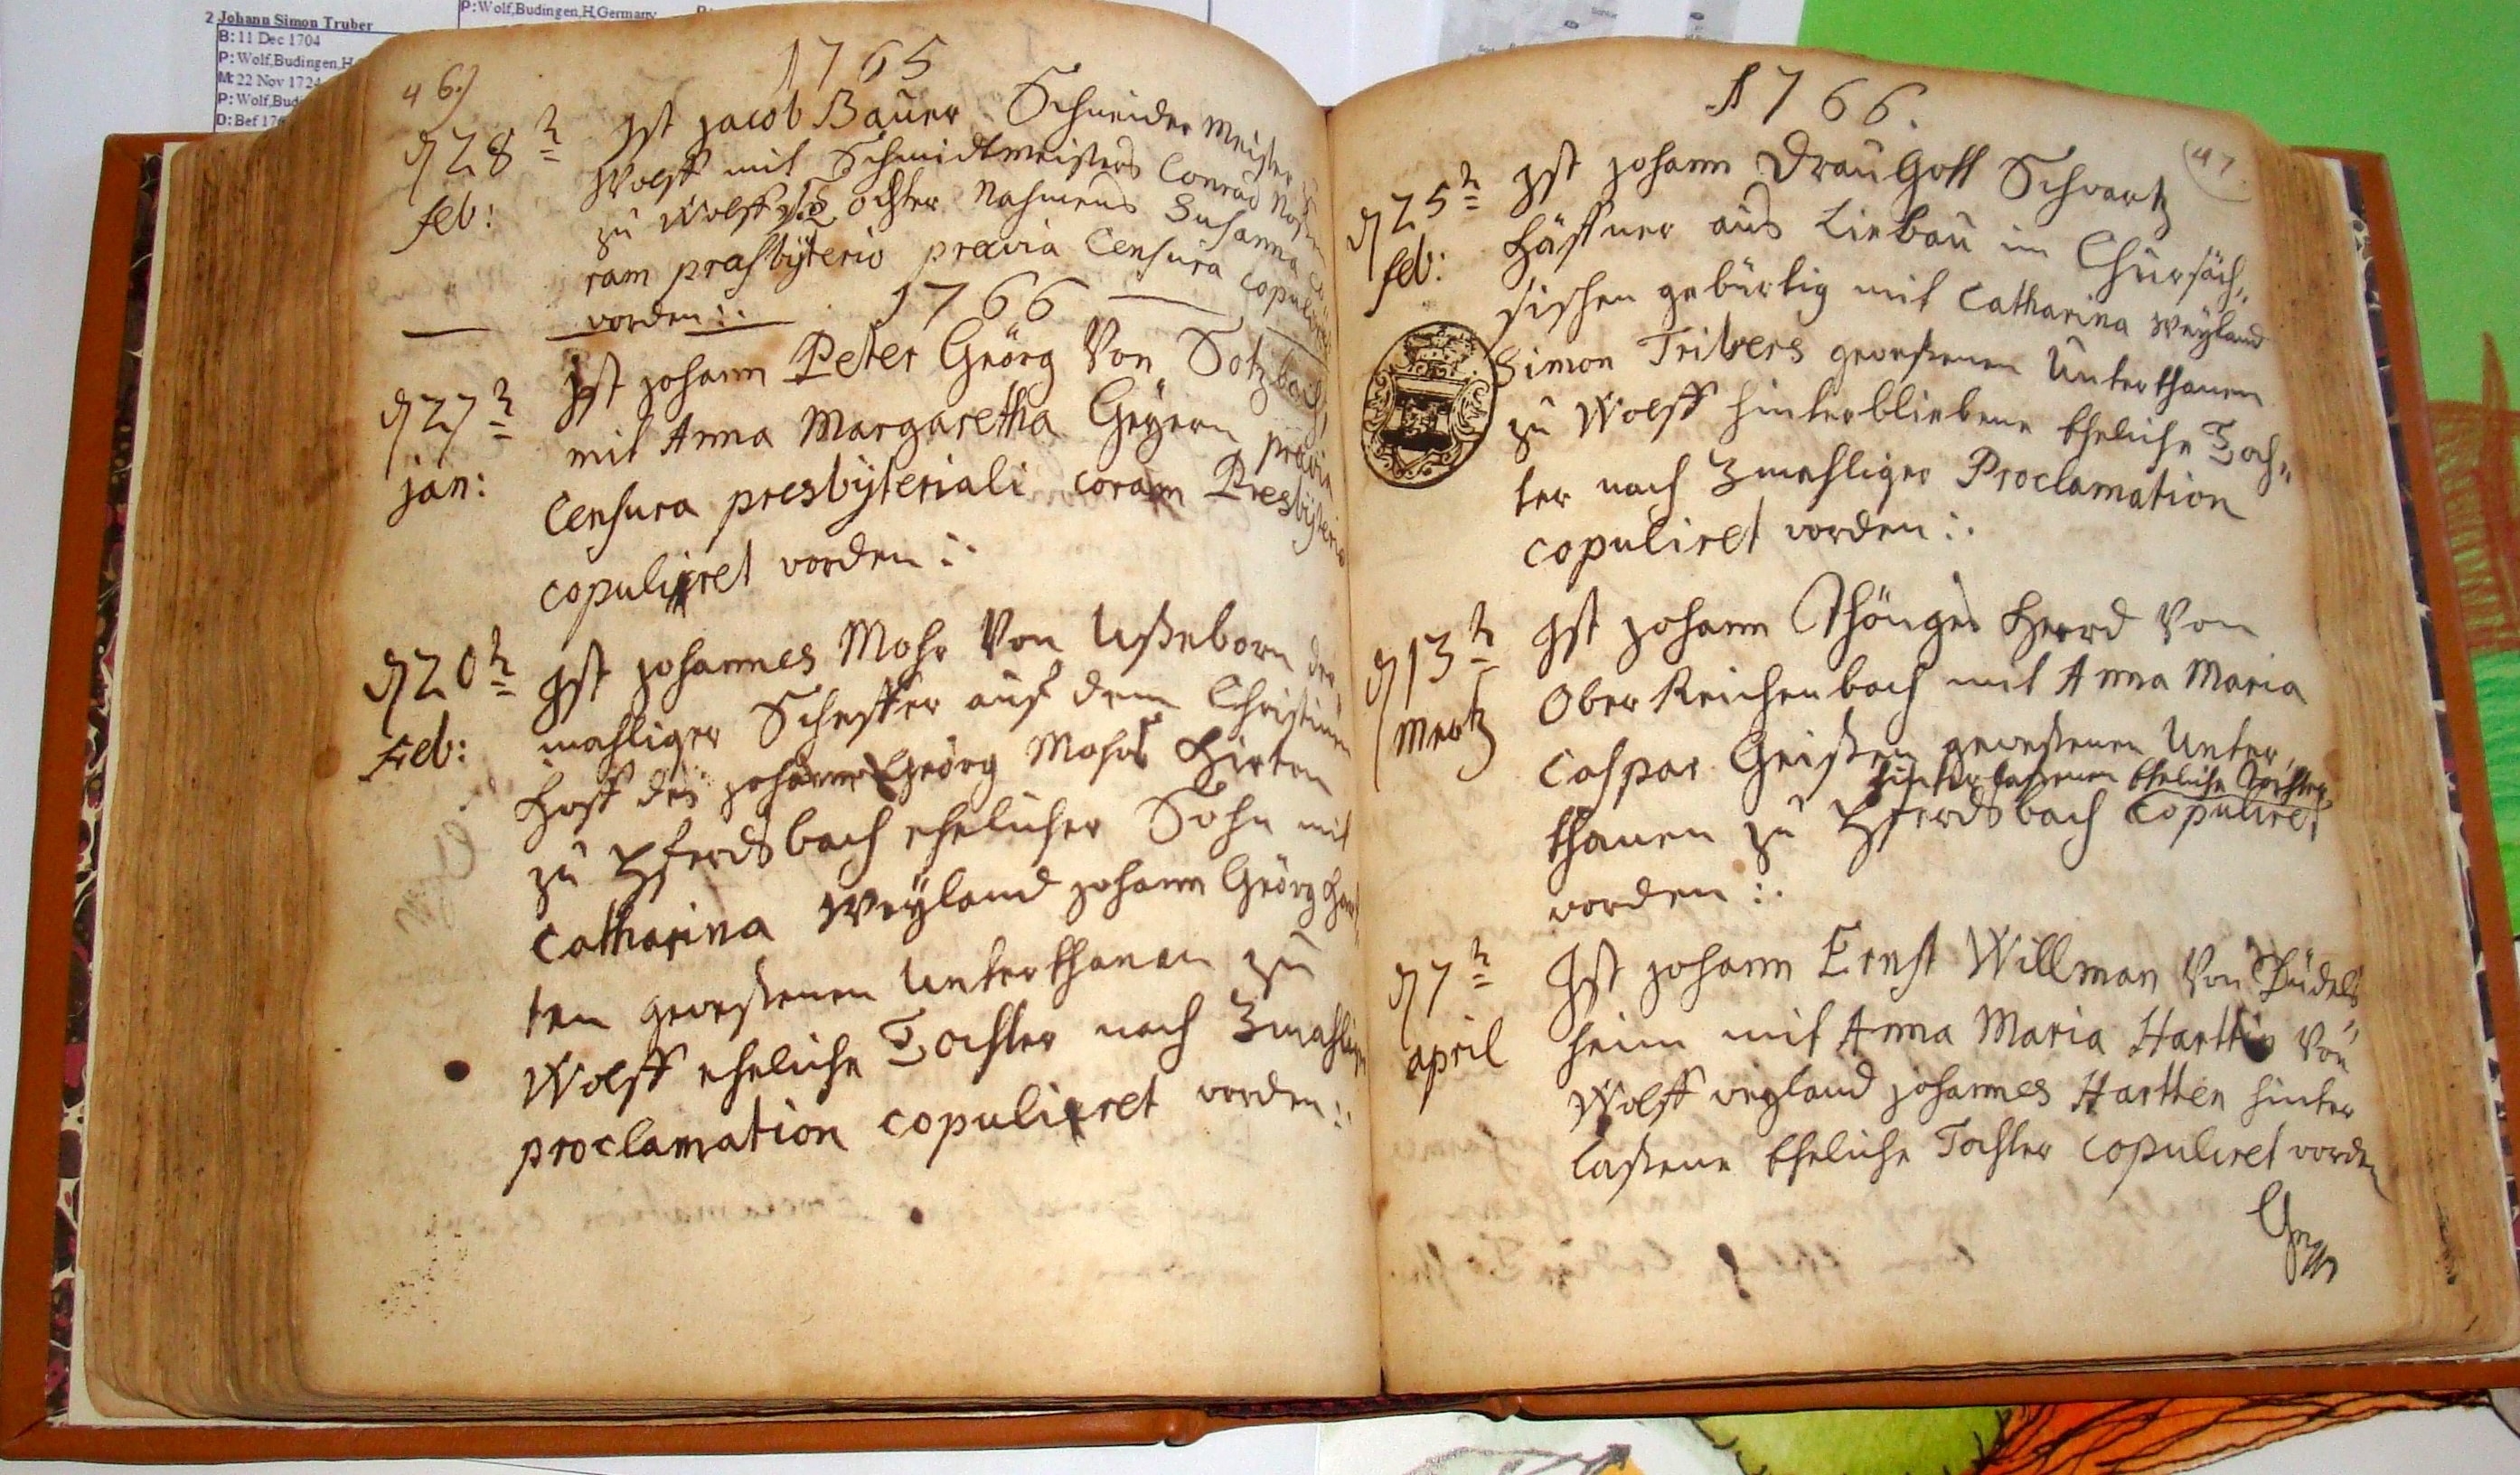 2 Johann Simon Truber
B: 11 Dec 1704
P: Wolf,Budingen,H
M: 22 Nov 1724
P: Wolf,Bud
D: Bef 176
P: Wolf,Budingen,H,Germany
46.)
1765
d 28n
feb:
Ist Jacob Bauer Schneider Meister
Wolff mit Schmidtmeisters Conrad
zu Wolff Tochter Nahmens Susanna
ram presbÿterio prævia Censura copuliret
worden :.
1766
d 27n
jan:
Ist Johann Peter Geörg Von Sotzbach
mit Anna Margaretha Geÿern prævia
Censura presbÿteriali coram Presbÿterio
copuliret worden :.
d 20n
Feb:
Ist Johannes Mohr Von Ußenborn der
mahliger Scheffer auf dem Christinen
Hoff des Johann Geörg Mohrs Hirten
zu Pferdsbach ehelicher Sohn mit
Catharina Weÿland Johann Geörg Har
ten geweßenen Unterthanen zu
Wolff eheliche Tochter nach 3mahliger
proclamation copuliret worden :.
1766.
47.
d 25n
feb:
Ist Johann Draugott Schwartz
Häffner aus Liebau im Chursäch„
sischen gebürtig mit Catharina Weÿland
Simon Tribers geweßenen Unterthanen
zu Wolff hinterbliebene Eheliche Toch„
ter nach 3mahliger Proclamation
copuliret worden :.
d 13n
Mertz
Ist Johann Thönges Herd Von
Ober Reichenbach mit Anna Maria
Caspar Geißen geweßenen Unter„
hinterlaßenen Eheliche Tochter
thanen zu Pferdsbach Copuliret
worden :.
d 7n
april
Ist Johann Ernst Willman Von Büdes
heim mit Anna Maria Harttin Von
Wolff weyland Johannes Hartten hinter
laßene Eheliche Tochter copuliret worden